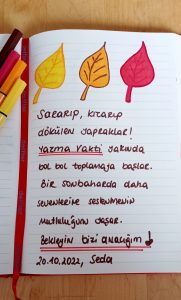 Sararıp, kızarıp
dökülen yapraklar!
Yazma Vakti yakında
bol bol toplamaya başlar.
Bir sonbaharda daha
sevenlerine seslenmenin
mutluluğunu yaşar.
Bekleyin bizi anacığım!
20.10.2022, Seda